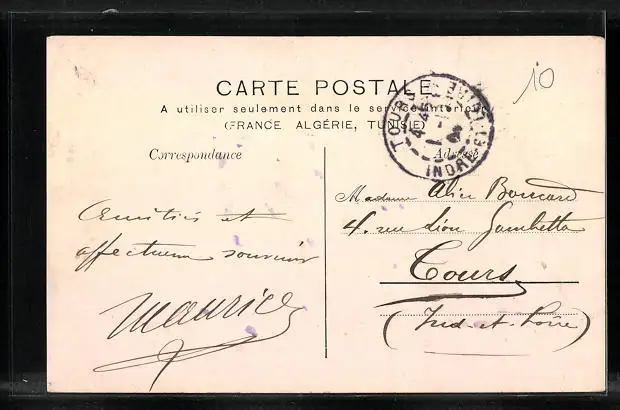 10
CARTE POSTALE
A utiliser seulement dans le service intérieur
(FRANCE ALGÉRIE, TUNISIE)
TOURS
INDRE-ET-LOIRE
Correspondance
Adresse
Amitiés et
affectueux souvenir
Maurice
Madame Alice Boucard
4. rue Léon Gambetta
Tours
(Ind-et-Loire)